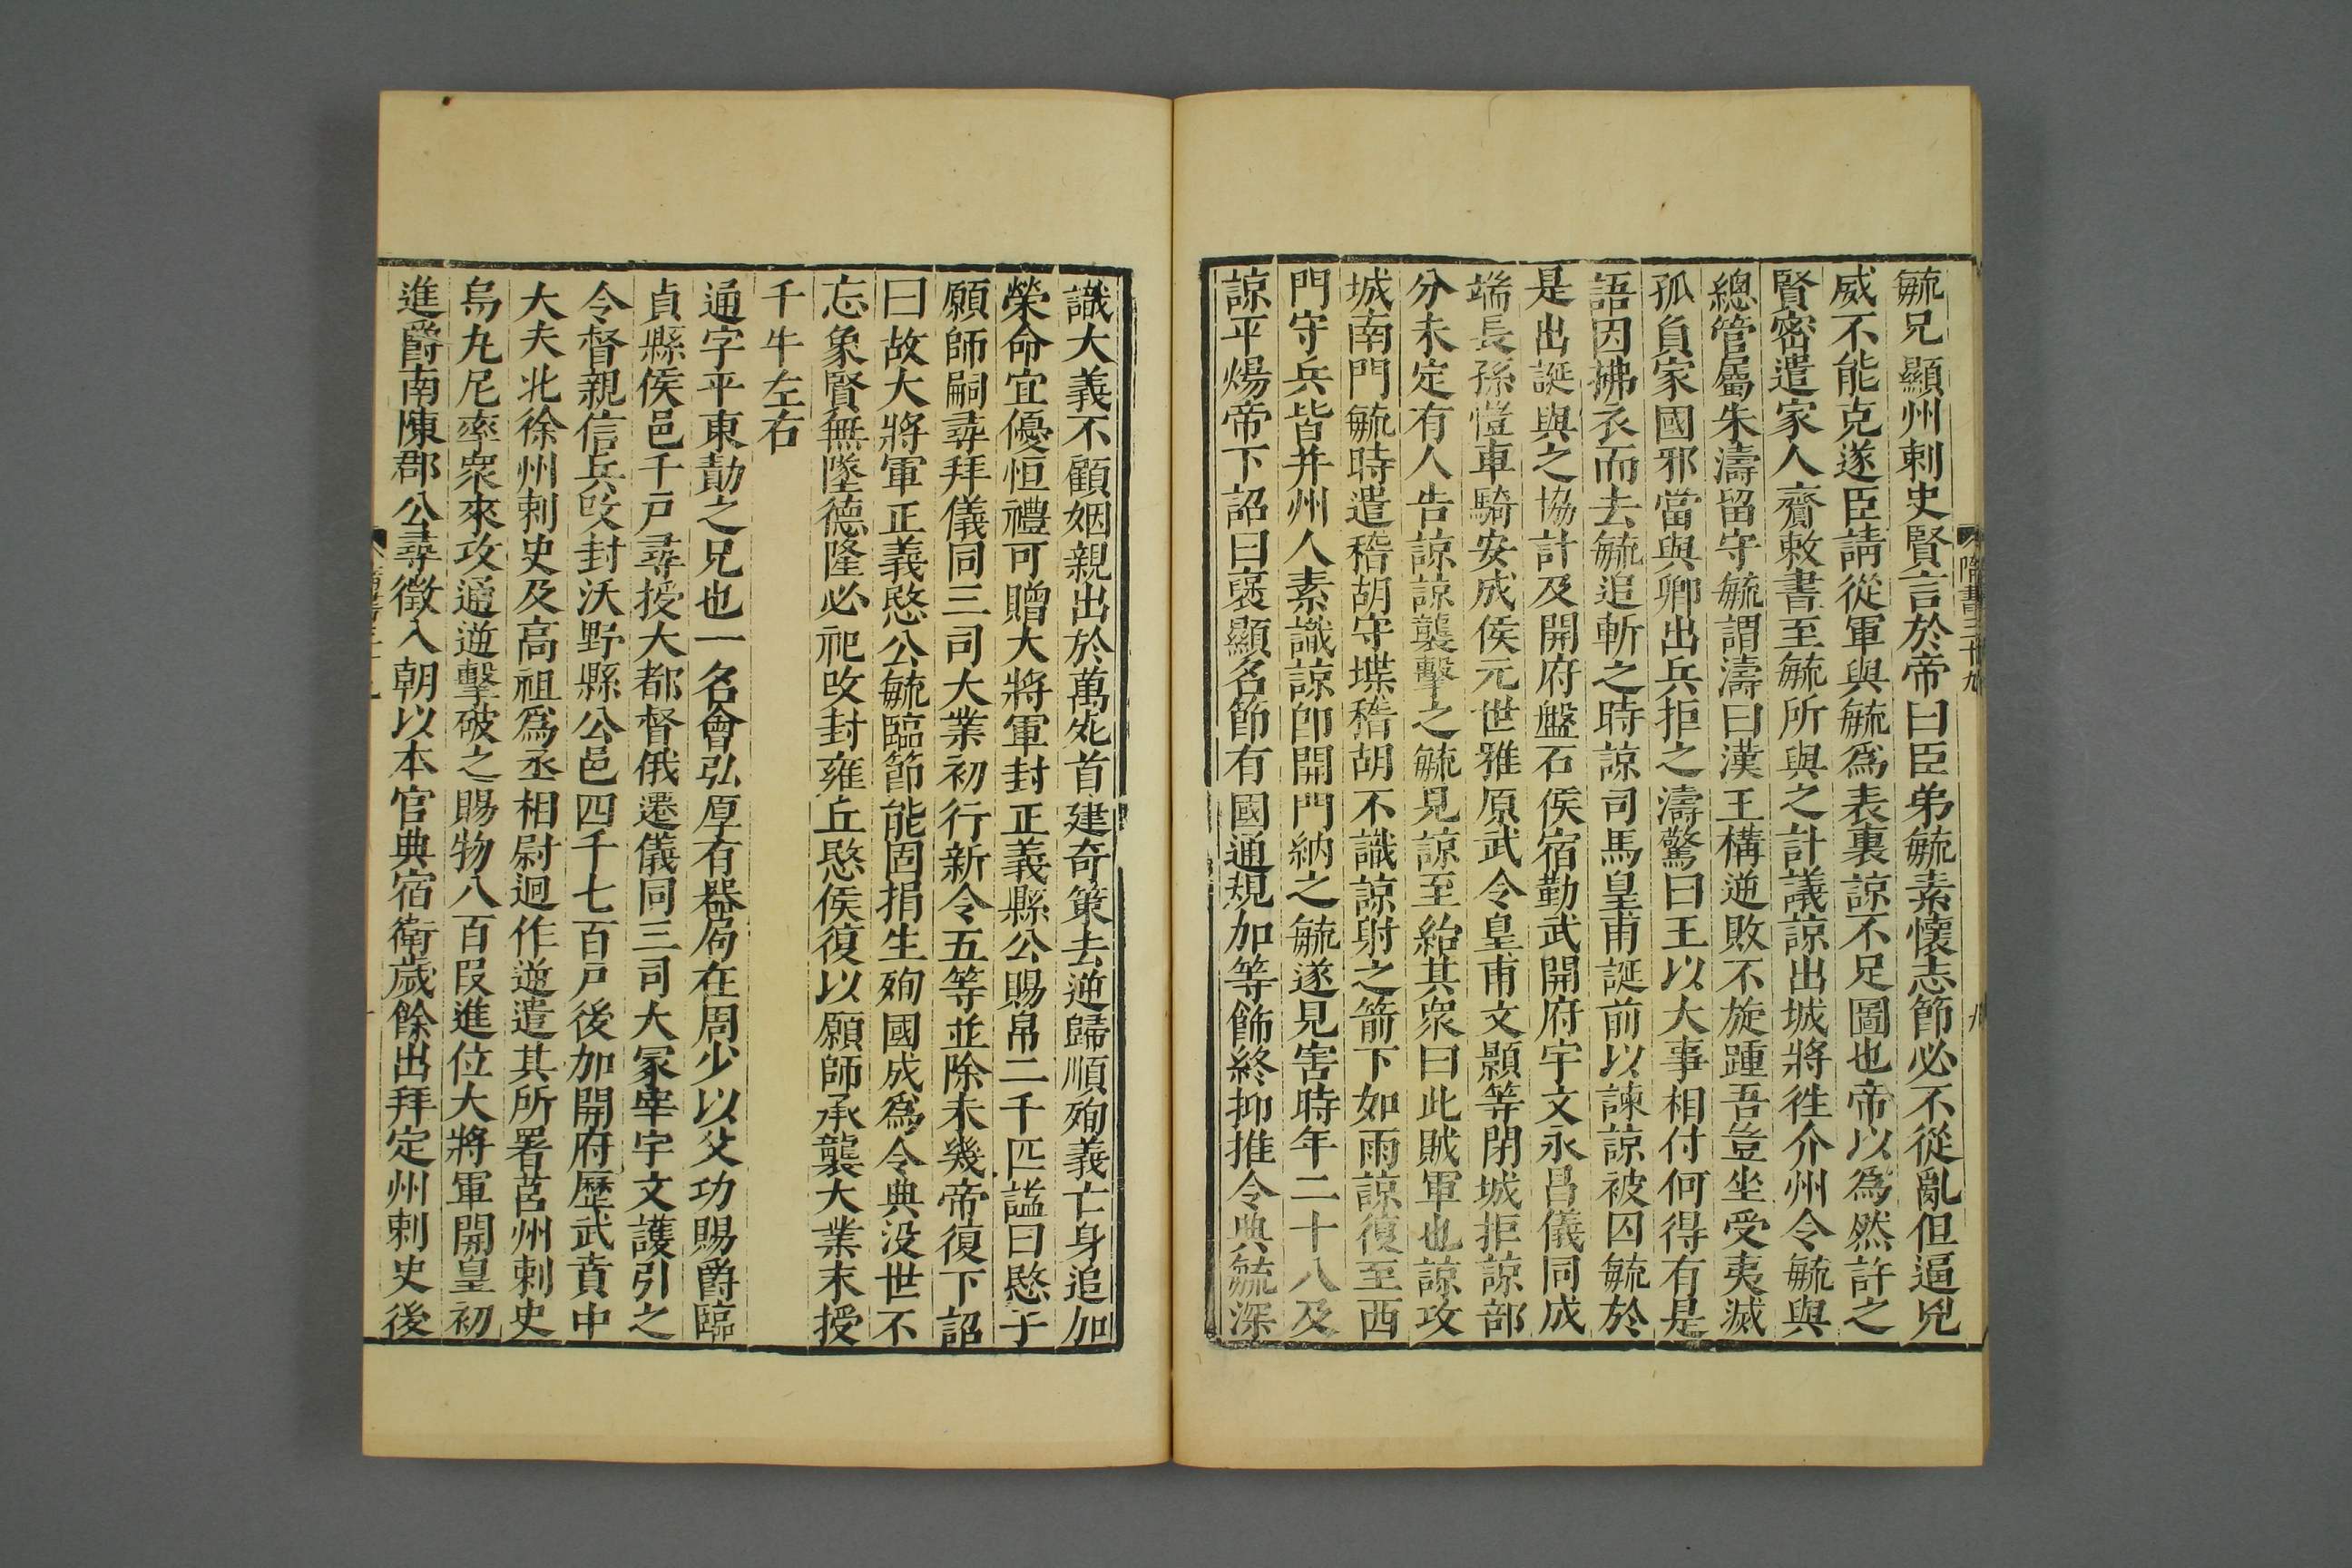 毓兄顯州刺史賢言於帝曰臣弟毓素懷志節必不從亂但逼兇
威不能克遂臣請從軍與毓爲表裏諒不足圖也帝以爲然許之
賢密遣家人齎敕書至毓所與之計議諒出城將徃介州令毓與
總管屬朱濤留守毓謂濤曰漢王構逆敗不旋踵吾豈坐受夷滅
孤負家國邪當與卿出兵拒之濤驚曰王以大事相付何得有是
語因拂衣而去毓追斬之時諒司馬皇甫誕前以諫諒被囚毓於
是出誕與之協計及開府盤石侯宿勤武開府宇文永昌儀同成
端長孫愷車騎安成侯元世雅原武令皇甫文顥等閉城拒諒部
分未定有人告諒諒襲擊之毓見諒至紿其衆曰此賊軍也諒攻
城南門毓時遣稽胡守堞稽胡不識諒射之箭下如雨諒復至西
門守兵皆并州人素識諒卽開門納之毓遂見害時年二十八及
諒平煬帝下詔曰襃顯名節有國通規加等飾終抑推令典毓深
隋書三十九
九
識大義不顧姻親出於萬死首建奇策去逆歸順殉義亡身追加
榮命宜優恒禮可贈大將軍封正義縣公賜帛二千匹諡曰愍子
願師嗣尋拜儀同三司大業初行新令五等並除未幾帝復下詔
曰故大將軍正義愍公毓臨節能固捐生殉國成爲令典没世不
忘象賢無墜德隆必祀改封雍丘愍侯復以願師承襲大業末授
千牛左右
通字平東勣之兄也一名會弘厚有器局在周少以父功賜爵臨
貞縣侯邑千戸尋授大都督俄遷儀同三司大冢宰宇文護引之
令督親信兵改封沃野縣公邑四千七百戸後加開府歷武賁中
大夫北徐州刺史及高祖爲丞相尉迥作逆遣其所署莒州刺史
烏丸尼率衆來攻通逆擊破之賜物八百段進位大將軍開皇初
進爵南陳郡公尋徵入朝以本官典宿衛歲餘出拜定州刺史後